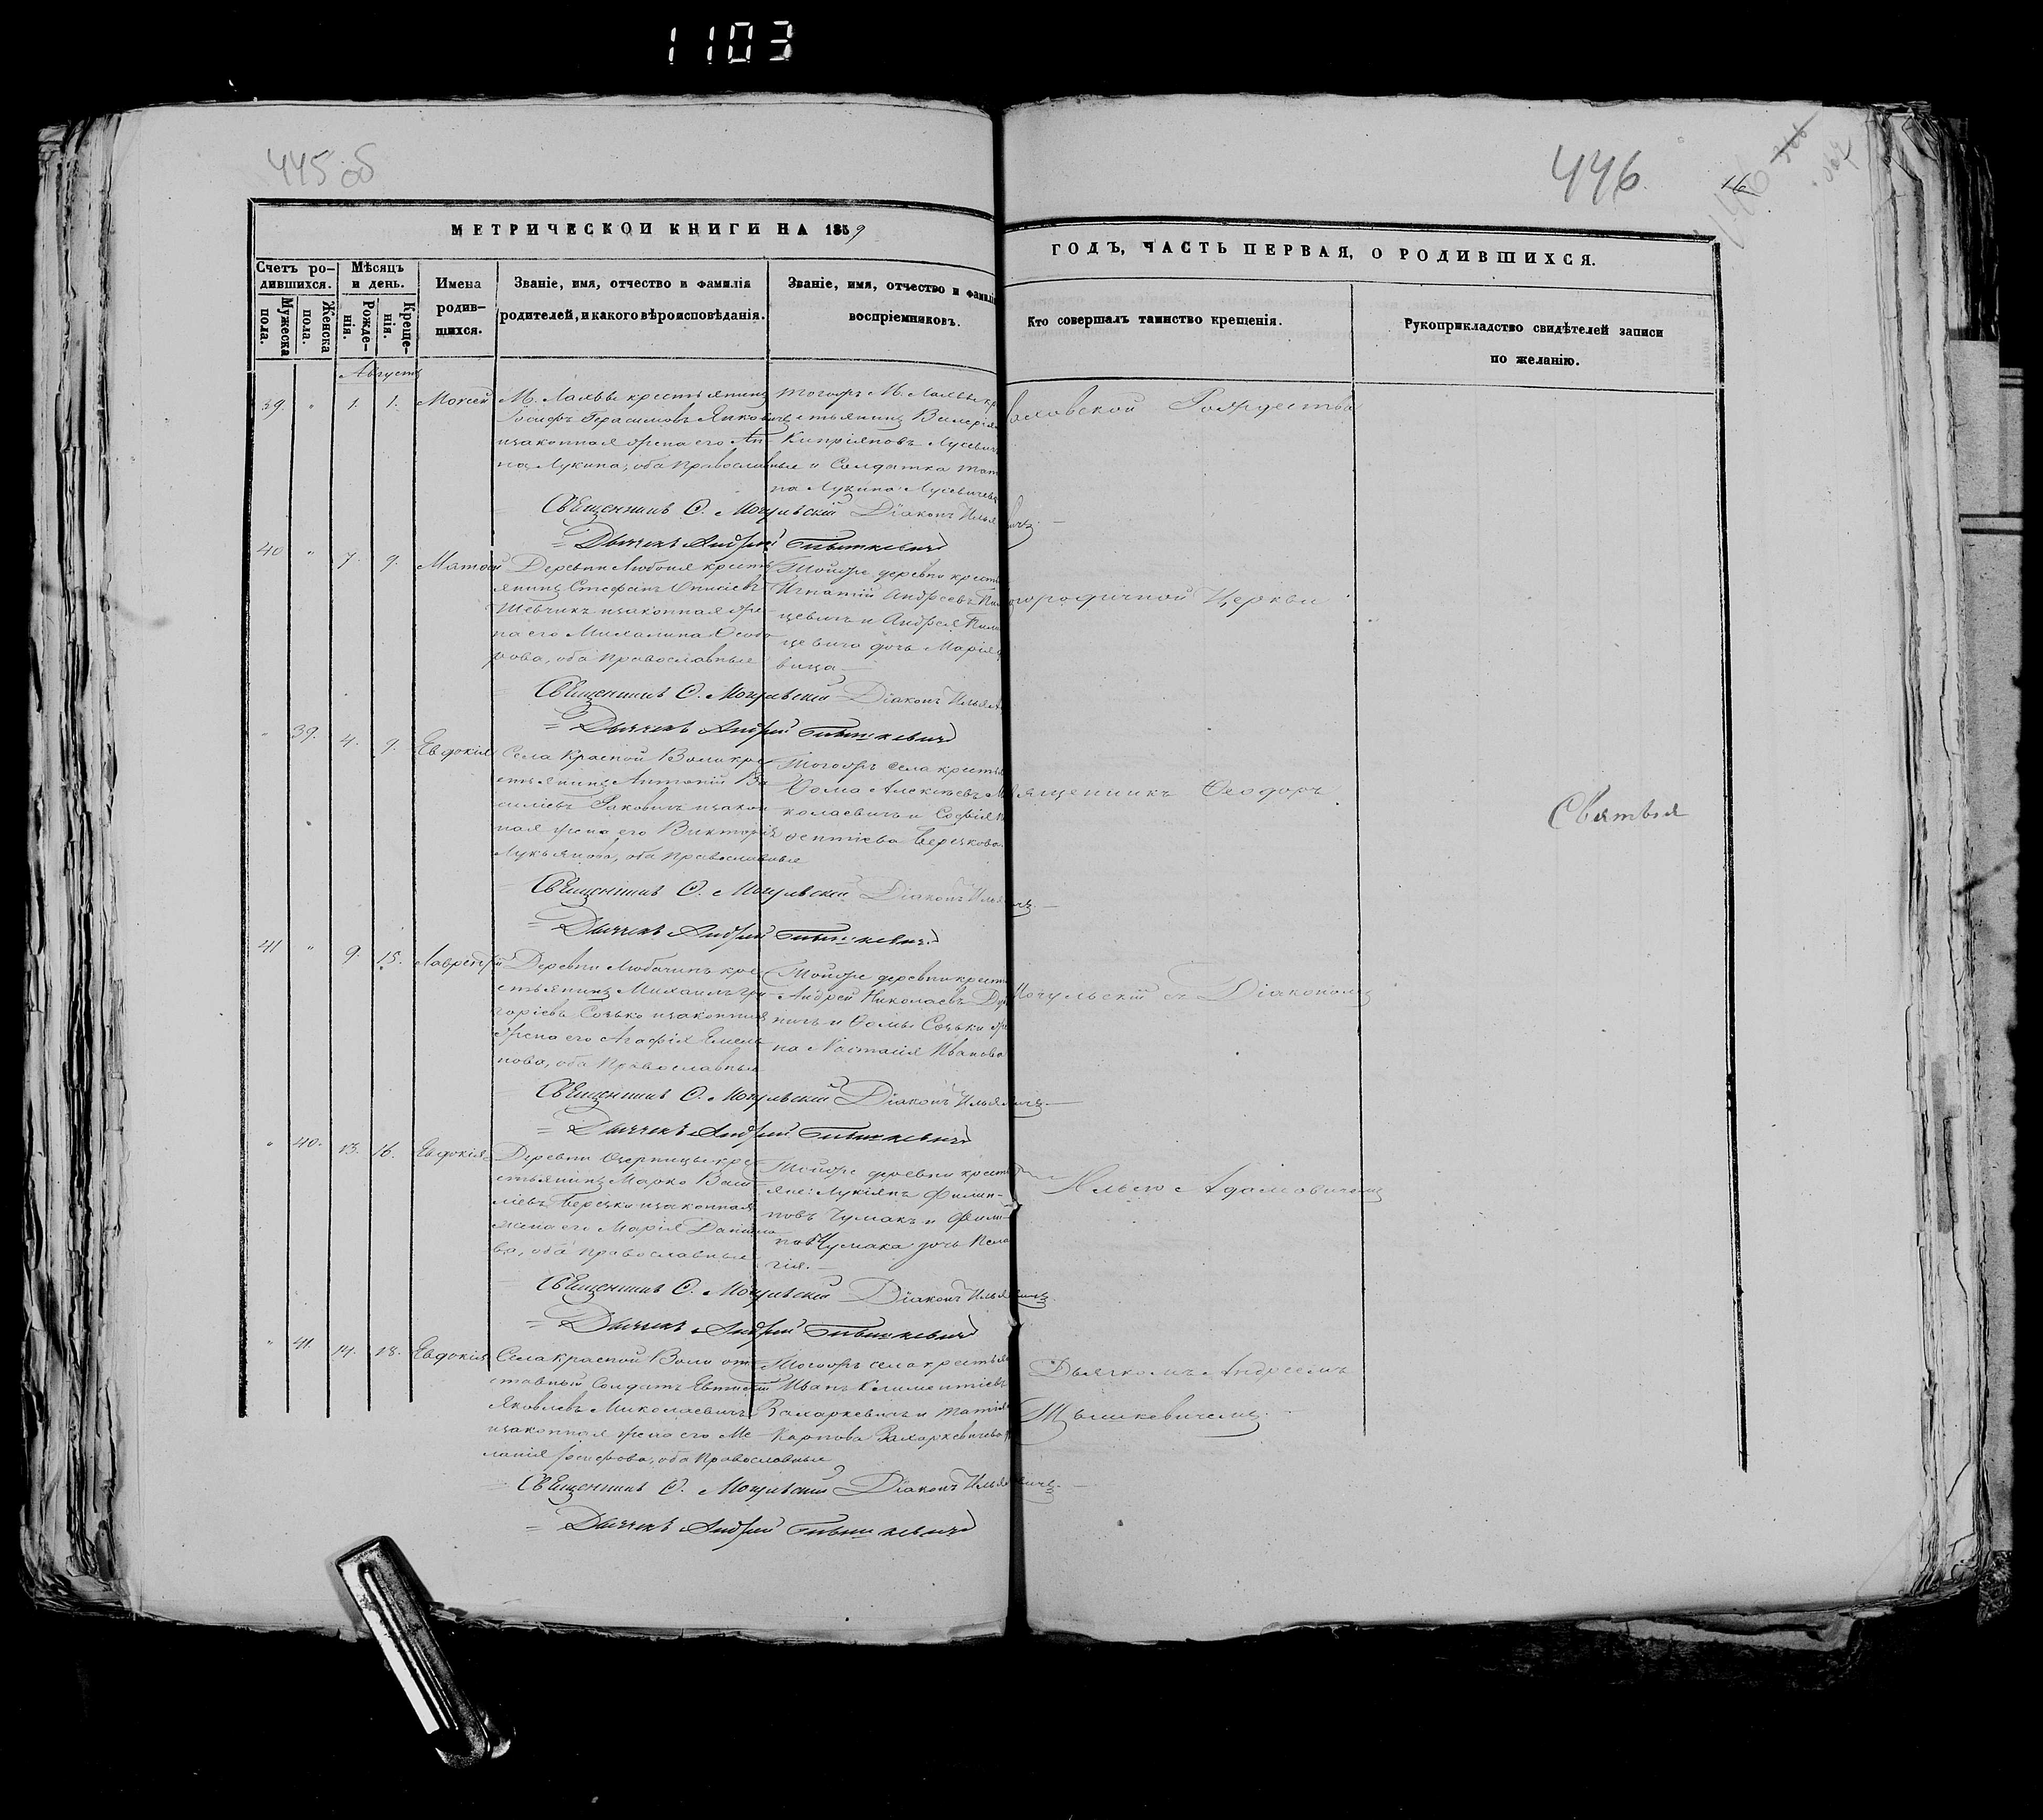 1103
445 об
446
МЕТРИЧЕСКОЙ КНИГИ НА 1859
ГОДЪ, ЧАСТЬ ПЕРВАЯ, О РОДИВШИХСЯ.
Счетъ ро-
дившихся.
Мужеска пола.
Женска пола.
Мѣсяцъ
и день.
Рожде-
нія.
Креще-
нія.
Имена
родив-
шихся.
Званіе, имя, отчество и фамилія
родителей, и какого вѣроисповѣданія.
Званіе, имя, отчество и фамилія
воспріемниковъ.
Кто совершалъ таинство крещенія.
Рукоприкладство свидѣтелей записи
по желанію.
Августъ
39. " 1. 1. Моисей
М. Лахвы крестьянинъ
Іосифъ Герасимовъ Янковичъ
изаконная жена его Ан-
на Лукина, оба православные
тогожъ М. Лахвы кр
естьянинъ Валерія
Кипріяновъ Лусевич
и Солдатка Тат
на Лукина Лусевичева
Священникъ Ѳ. Могульскій Діаконъ Илья
Дьячекъ Андрей Тышкевичъ
40 " 7. 9. Матѳей
Деревни Любоня крест
янинъ Стефанъ
Шевчикъ изаконная же-
на его Михалина Ѳеодо
рова, оба православные
Тойже деревни крест
Игнатій Андреевъ
цевичъ и Андрея
цевича дочь Марія
вица
Священникъ Ѳ. Могульскій Діаконъ Илья
Дьячекъ Андрей Тышкевичъ
" 39. 4. 9. Евдокія
Села Красной Воли кре
стьянинъ Антоній Ва
силіевъ Раковичъ изакон
ная жена его Викторія
Лукьянова, оба православные
Тогожъ села крестья
Ѳома Алексѣевъ М
колаевичъ и Софія
Верезкова
Священникъ Ѳ. Могульскій Діаконъ Илья
Дьячекъ Андрей Тышкевичъ
41 " 9. 15. Лаврентій
Деревни Любачинъ кре-
стьянинъ Михаилъ Гри-
горіевъ Сочько изаконная
жена его Агафія Емель
нова, оба Православные
Тойже деревни крест
Андрей Николаевъ
ничъ и Ѳомы Сочьки же
на Настасія Иванова
Священникъ Ѳ. Могульскій Діаконъ Илья
Дьячекъ Андрей Тышкевичъ
" 40. 13. 16. Евдокія
Деревни Озерницы кре-
стьянинъ Марко Васи
ліевъ Верезко изаконная
жена его Марія Данило
ва, оба православные
Тойже деревни кресть
яне: Лукіянъ Филип-
повъ Чумакъ и Фили-
повъ Чумака дочь Пела
гія.
Священникъ Ѳ. Могульскій Діаконъ Илья
Дьячекъ Андрей Тышкевичъ
" 41. 14. 18. Евдокія
Села Красной Воли от-
ставный Солдатъ Евтихій
Яковлевъ Миколаевичъ
изаконная жена его Ме-
ланія Іосифова, оба Православные
Тогожъ села крестья
Иванъ Климентіевъ
Захаркевичъ и
Карпова Захаркевичева
Священникъ Ѳ. Могульскій Діаконъ Илья
Дьячекъ Андрей Тышкевичъ
Рождество
огородичной Церкви
ященникъ Ѳеодоръ
Могульскій съ Діакономъ
Ильею Адамовичемъ
Дьячкомъ Андреемъ
Тышкевичемъ.
Святыя